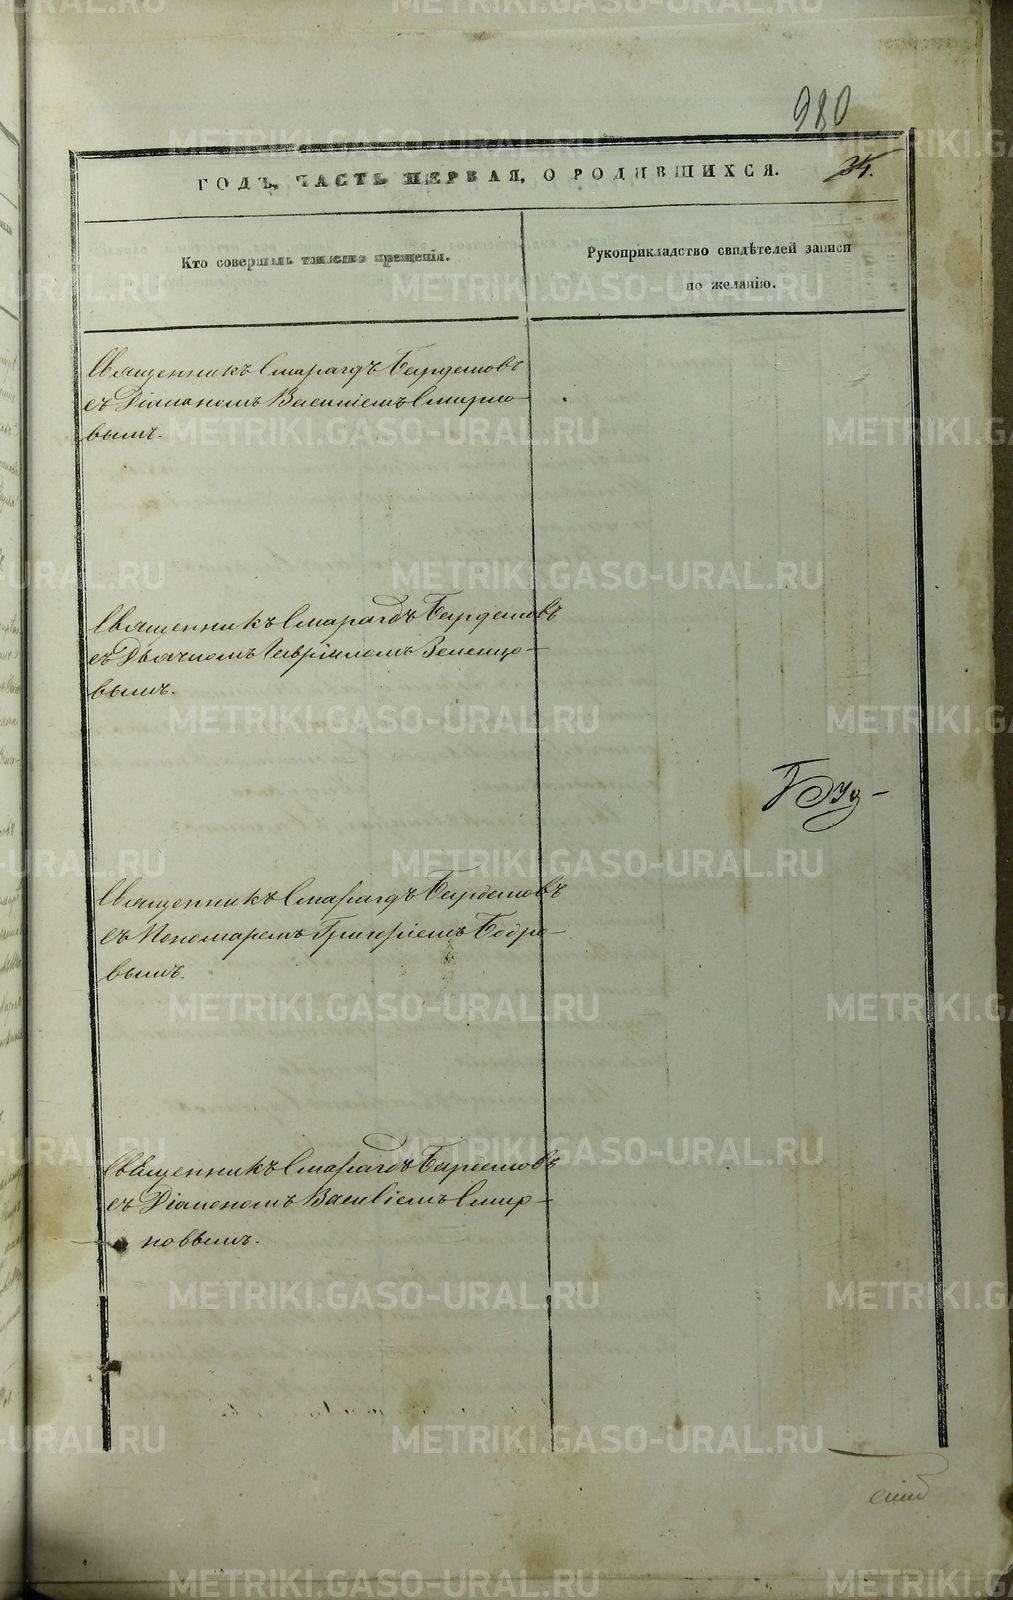 980
ГОДЪ, ЧАСТЬ ПЕРВАЯ, О РОДИВШИХСЯ.
34.
Кто совершалъ таинство крещенія.
Рукоприкладство свидѣтелей записи
по желанію.
Священникъ Смарагдъ
съ Діакономъ Василіемъ Смирно-
вымъ.
Священникъ Смарагдъ
съ Дьячкомъ Гавріиломъ
вымъ.
Священникъ Смарагдъ
съ Пономаремъ Григоріемъ Бобро-
вымъ.
Священникъ Смарагдъ
съ Діакономъ Василіемъ Смир-
новвымъ.
METRIKI.GASO-URAL.RU